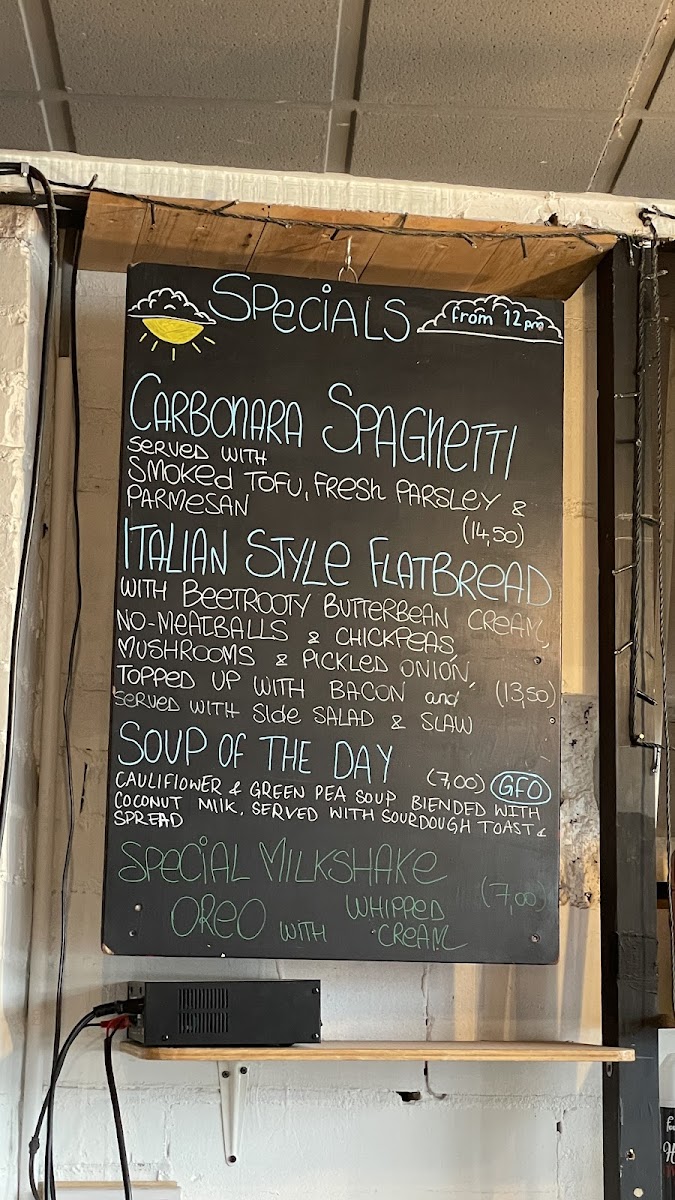 SPECIALS
from 12pm
CARBONARA SPAGHETTI
SERVED WITH
SMOKED TOFU, FRESH PARSLEY &
PARMESAN
(14,50)
ITALIAN STYLE FLATBREAD
WITH BEETROOTY BUTTERBEAN CREAM,
NO-MEATBALLS & CHICKPEAS,
MUSHROOMS & PICKLED ONION,
TOPPED UP WITH BACON and (13,50)
SERVED WITH SIDE SALAD & SLAW
SOUP OF THE DAY
(7,00) GFO
CAULIFLOWER & GREEN PEA SOUP BLENDED WITH
COCONUT MILK, SERVED WITH SOURDOUGH TOAST &
SPREAD
SPECIAL MILKSHAKE
(7,00)
OREO WITH WHIPPED
CREAM